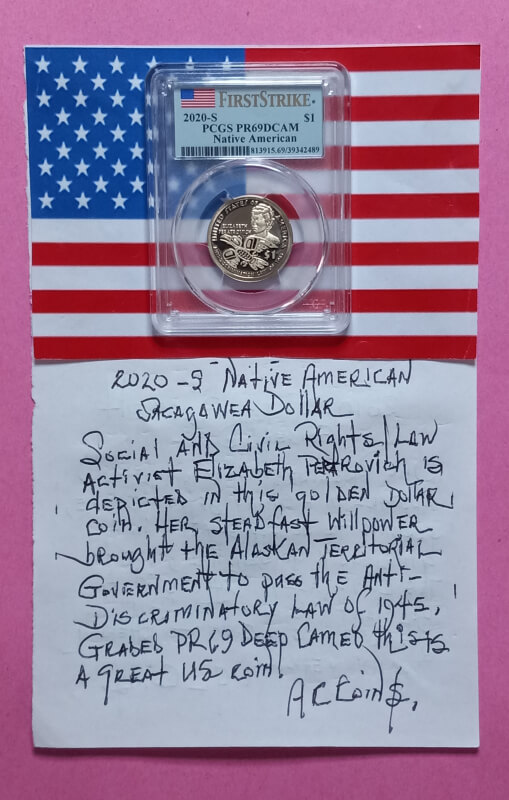 FIRSTSTRIKE
2020-S $1
PCGS PR69DCAM
Native American
813915.69/39342489
UNITED STATES OF AMERICA
ELIZABETH
PERATROVICH
$1
2020-S NATIVE AMERICAN
SACAGAWEA DOLLAR
SOCIAL AND CIVIL RIGHTS LAW
ACTIVIST ELIZABETH PERTROVICH IS
DEPICTED IN THIS GOLDEN DOLLAR
COIN. HER STEADFAST WILLPOWER
BROUGHT THE ALASKAN TERRITORIAL
GOVERNMENT TO PASS THE ANTI-
DISCRIMINATORY LAW OF 1945.
GRADED PR69 DEEP CAMEO THIS IS
A GREAT US COIN.
A C COIN$.